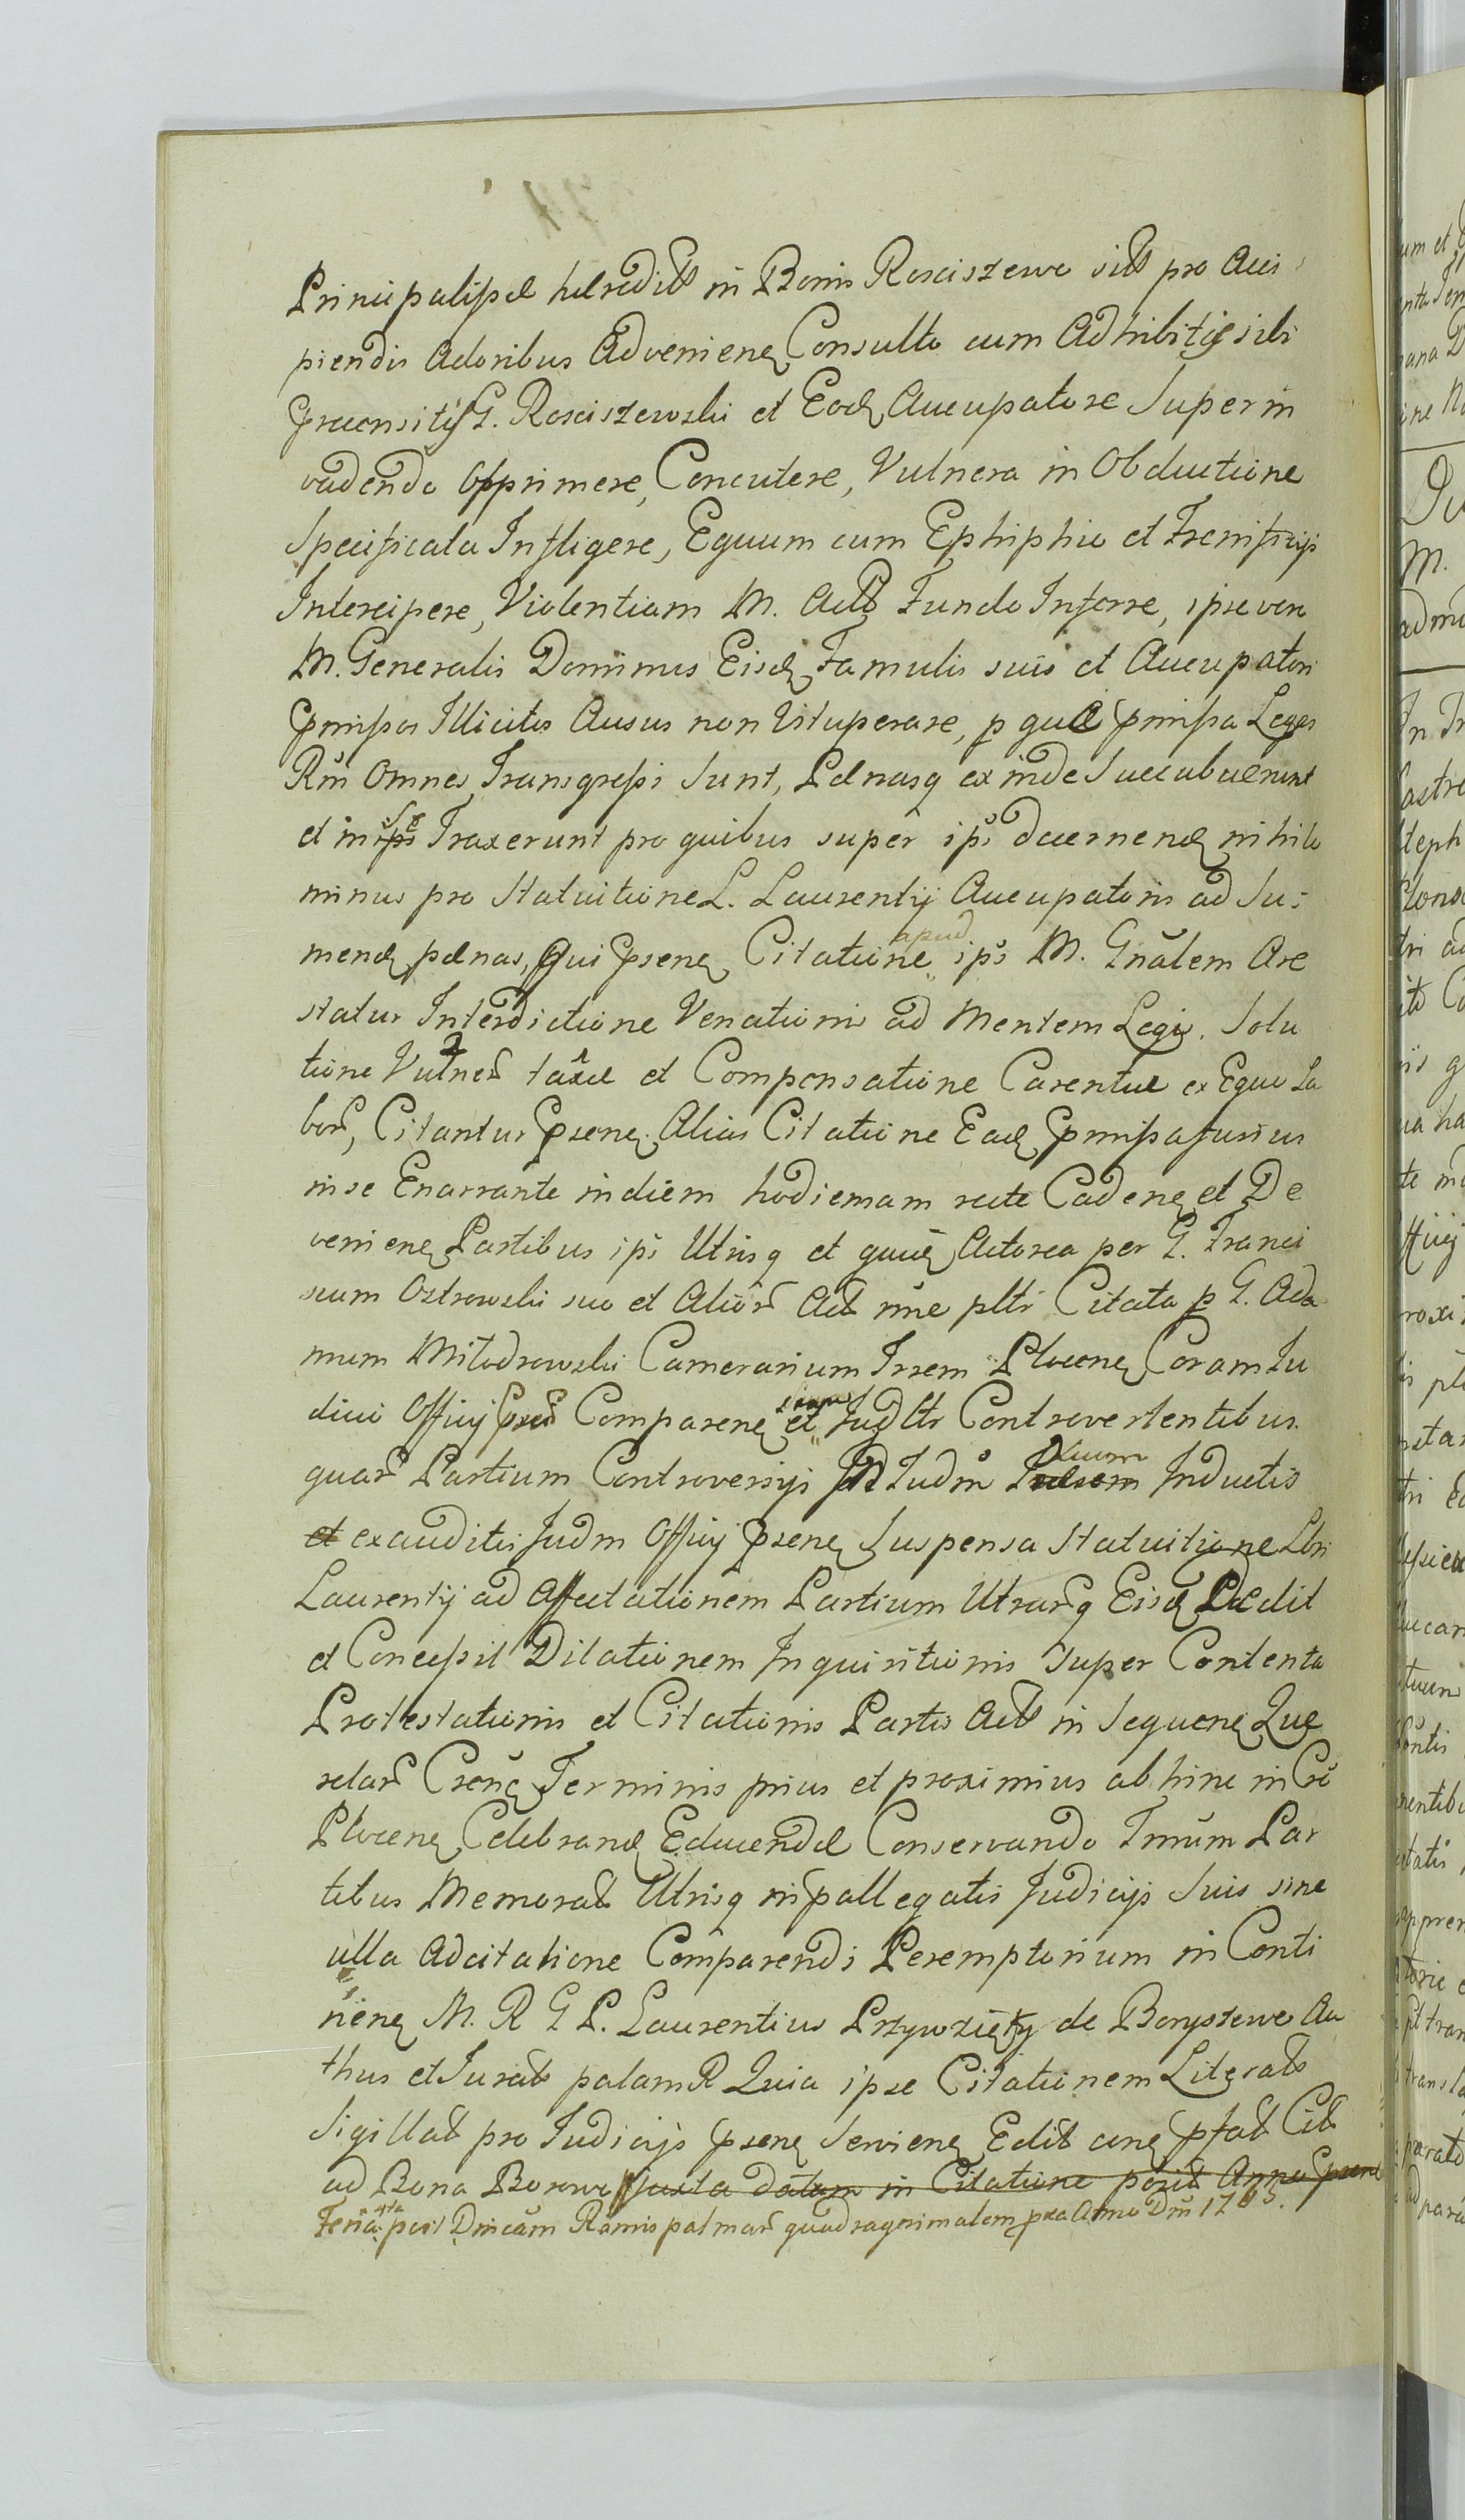 Principalissae haeredit in Bonis Rosciszewo sitt pro Acci
piendis Actoribus Advenienę Consulto cum Adhibitis sibi
Praecensitis G. Rosciszewski et Eodę Aucupatore Superin
vadendo Opprimere, Concutere, Vulnera in Obductione
Specificata Infligere, Equum cum Ephiphio et Frenisicijs
Intercipere, Violentiam M. Actt Fundo Inferre, ipse vero
M. Generalis Dominus Eisdę Famulis suis et Aucupatori
Pmissos Illicitos Ausus non Vituperare, p quae pmissa Leges
Rni Omnes Transgressi Sunt, Paenasq ex inde Succubuerunt
et in se Traxerunt pro quibus super ipsis decernendę nihilo
minus pro Statuitione L. Laurentij Aucupatoris ad Su:
mendę paenas, Qui Psenę Citatione apud ips M. Gnalem Are
statur Interdictione Venationis ad Mentem Legis. Solu
tione Vulner taxae et Compensatione Carentiae ex Equo La
bor, Citantur Psenę Alias Citatione Eadę Pmissa fusius
in se Enarrante in diem hodiernam recte Cadenę et De
venienę Partibus ips Utrisq et quidę Actorea per G. Franci
scum Ostrowski suo et Alior Actt nne pltr Citata p G. Ada
mum Mitodrowski Camerarium Trrem Plocenę Coram Ju
dicio Officij Psen Comparenę et Judltr Controvertentibus.
quar Partium Controversijs In Judm Inductis
exauditis Judm Officij Psenę Suspensa Statuitione Lbri
Laurentij ad Affectationem Partium Utrarq Eisdę Dedit
et Concessit Dilationem Inquisitionis Super Contenta
Protestationis et Citationis Partis Actt in Sequenę Que
relar Crenę Terminis prius et proximius ab hinc in Cro
Plocenę Celebrandę Educendae Conservando Tmum Par
tibus Memorat Utrisq in pallegatis Judicijs Suis sine
ulla Adcitatione Comparendi Peremptorium in Conti
nenę M. R G P. Laurentius Przywzięty de Boryszewo Au
thus et Jurat palam R Quia ipse Citationem Literatt
Sigillat pro Judicijs Psenę Servienę Edit conę pfat Citt
ad Bona Borowo juxta datam in Citatione posit Anno Psenti
Feria 4ta post Dnicam Ramispalmar quadragesimalem pxa Anno Dni 1765.